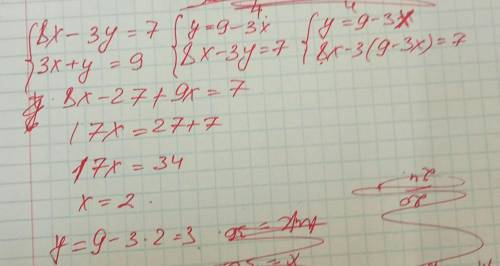 {8x - 3y = 7 {y = 9 - 3x {y = 9 - 3x
{3x + y = 9 {8x - 3y = 7 {8x - 3(9 - 3x) = 7
8x - 27 + 9x = 7
17x = 27 + 7
17x = 34
x = 2.
y = 9 - 3 · 2 = 3